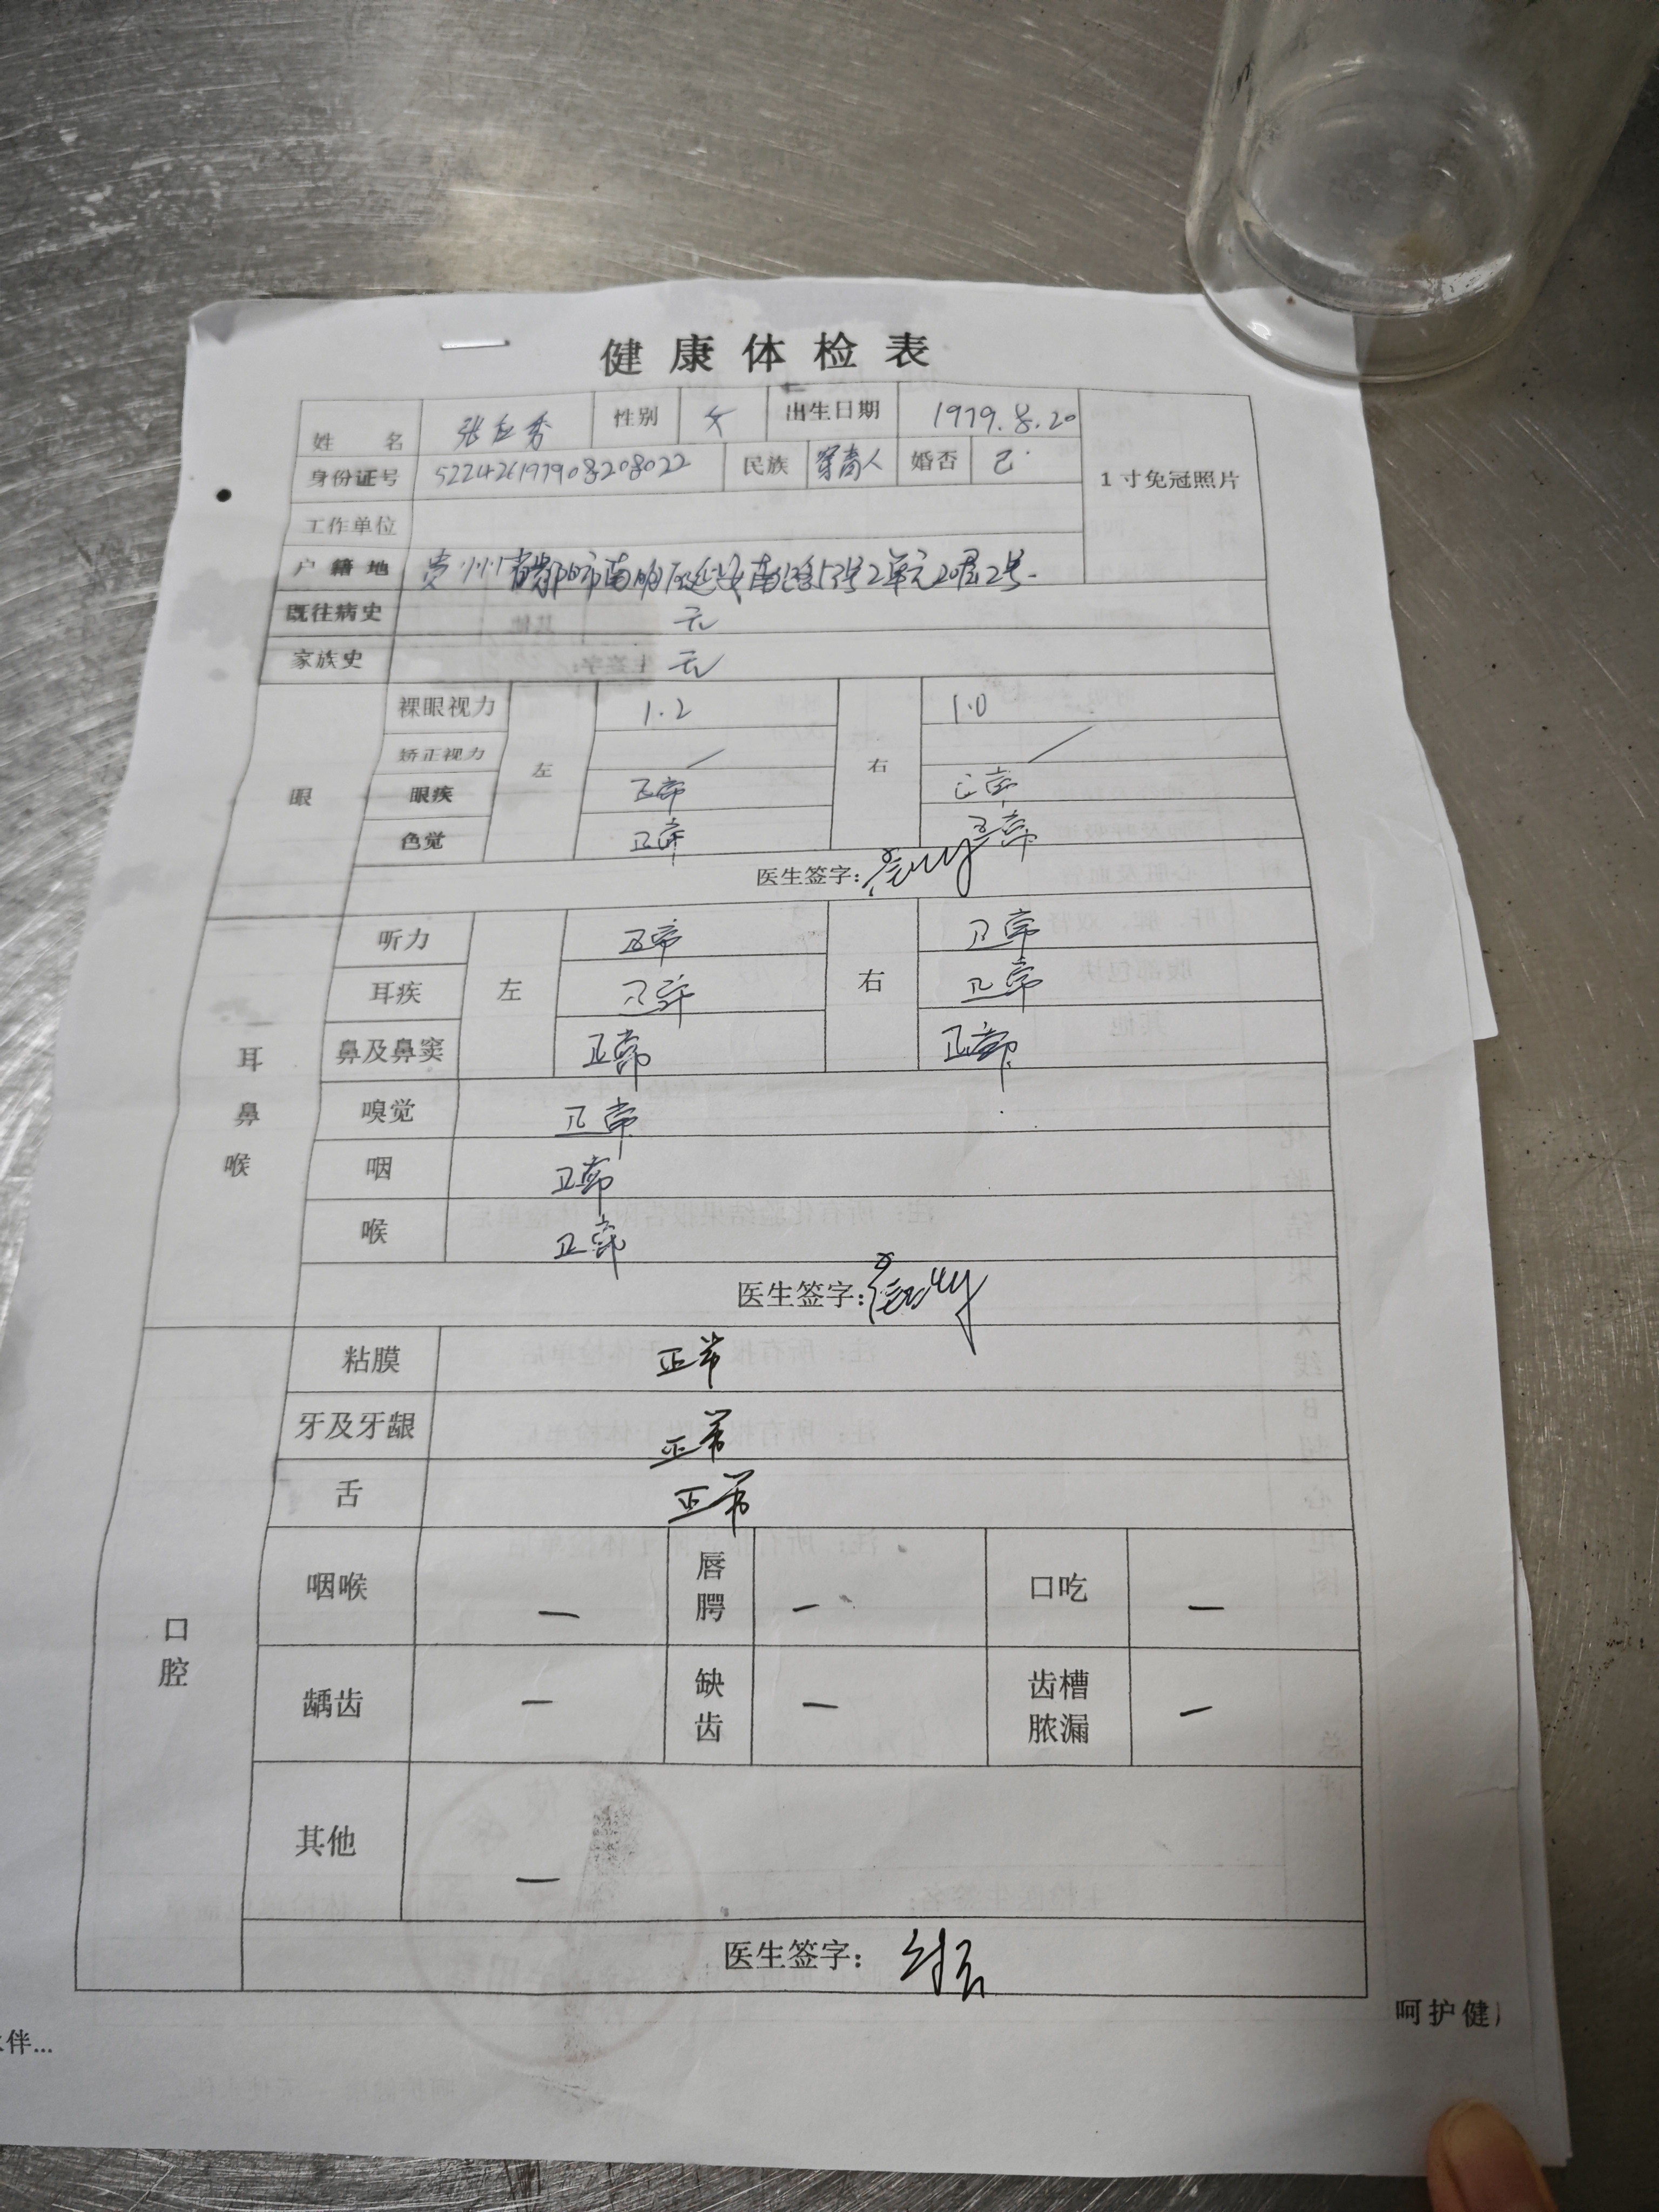 健康体检表
姓 名 张应秀 性别 女 出生日期 1979.8.20
身份证号 522426197908208022 民族 穿青人 婚否 已 1寸免冠照片
工作单位
户籍地 贵州省贵阳市南明区延安南路 号2单元20层2号
既往病史 无
家族史 无
眼
裸眼视力 左 1.2 右 1.0
矫正视力 / /
眼疾 正常 正常
色觉 正常 正常
医生签字:
耳鼻喉
听力 左 正常 右 正常
耳疾 正常 正常
鼻及鼻窦 正常 正常
嗅觉 正常
咽 正常
喉 正常
医生签字:
口腔
粘膜 正常
牙及牙龈 正常
舌 正常
咽喉 — 唇腭 — 口吃 —
龋齿 — 缺齿 — 齿槽脓漏 —
其他 —
医生签字:
呵护健
伴...